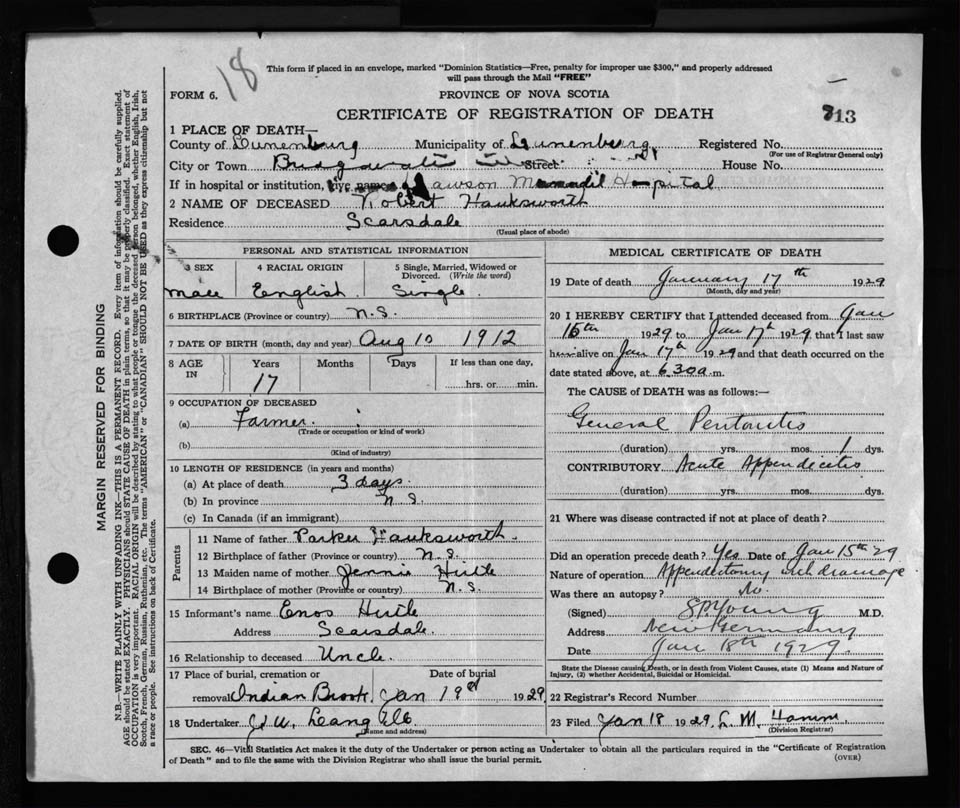 18
This form if placed in an envelope, marked "Dominion Statistics—Free, penalty for improper use $300," and properly addressed
will pass through the Mail "FREE"
FORM 6.
PROVINCE OF NOVA SCOTIA
CERTIFICATE OF REGISTRATION OF DEATH
713
1 PLACE OF DEATH—
County of Lunenburg Municipality of Lunenburg Registered No.
(For use of Registrar General only)
City or Town Street House No.
If in hospital or institution, give name Dawson Memorial Hospital
2 NAME OF DECEASED Robert Hawksworth
Residence Scarsdale
(Usual place of abode)
PERSONAL AND STATISTICAL INFORMATION
3 SEX 4 RACIAL ORIGIN 5 Single, Married, Widowed or
Divorced. (Write the word)
Male English. Single.
6 BIRTHPLACE (Province or country) N.S.
7 DATE OF BIRTH (month, day and year) Aug 10 1912
8 AGE IN Years Months Days If less than one day,
17 hrs. or min.
9 OCCUPATION OF DECEASED
(a) Farmer.
(Trade or occupation or kind of work)
(b)
(Kind of industry)
10 LENGTH OF RESIDENCE (in years and months)
(a) At place of death 3 days.
(b) In province N.S.
(c) In Canada (if an immigrant)
Parents
11 Name of father Parker Hawksworth.
12 Birthplace of father (Province or country) N.S.
13 Maiden name of mother Jennie Hirtle
14 Birthplace of mother (Province or country) N.S.
15 Informant's name Enos Hirtle
Address Scarsdale.
16 Relationship to deceased Uncle.
17 Place of burial, cremation or Date of burial
removal Indian Brook, Jan 19 1929
18 Undertaker J.W.
(Name and address)
MEDICAL CERTIFICATE OF DEATH
19 Date of death January 17th 1929
(Month, day and year)
20 I HEREBY CERTIFY that I attended deceased from Jan
16th 1929 to Jan 17th 1929 that I last saw
him alive on Jan 17th 1929 and that death occurred on the
date stated above, at 6.30 a.m.
The CAUSE OF DEATH was as follows:—
General Peritonitis
(duration) yrs. mos. 1 dys.
CONTRIBUTORY Acute Appendicitis
(duration) yrs. mos. dys.
21 Where was disease contracted if not at place of death?
Did an operation precede death? Yes Date of Jan 15th 29
Nature of operation Appendectomy with drainage
Was there an autopsy? No.
(Signed) S.P. Young M.D.
Address New Germany
Date Jan 18th 1929.
State the Disease causing Death, or in death from Violent Causes, state (1) Means and Nature of
Injury, (2) whether Accidental, Suicidal or Homicidal.
22 Registrar's Record Number
23 Filed Jan 18 1929. L. M.
(Division Registrar)
SEC. 46—Vital Statistics Act makes it the duty of the Undertaker or person acting as Undertaker to obtain all the particulars required in the "Certificate of Registration
of Death" and to file the same with the Division Registrar who shall issue the burial permit.
(OVER)
MARGIN RESERVED FOR BINDING
N.B.—WRITE PLAINLY WITH UNFADING INK—THIS IS A PERMANENT RECORD. Every item of information should be carefully supplied.
AGE should be stated EXACTLY. PHYSICIANS should STATE CAUSE OF DEATH in plain terms, so that it may be properly classified. Exact statement of
OCCUPATION is very important. RACIAL ORIGIN will be described by stating to what people or tongue the deceased person belonged, whether English, Irish,
Scotch, French, German, Russian, Ruthenian, etc. The terms "AMERICAN" or "CANADIAN" SHOULD NOT BE USED as they express citizenship but not
a race or people. See instructions on back of Certificate.